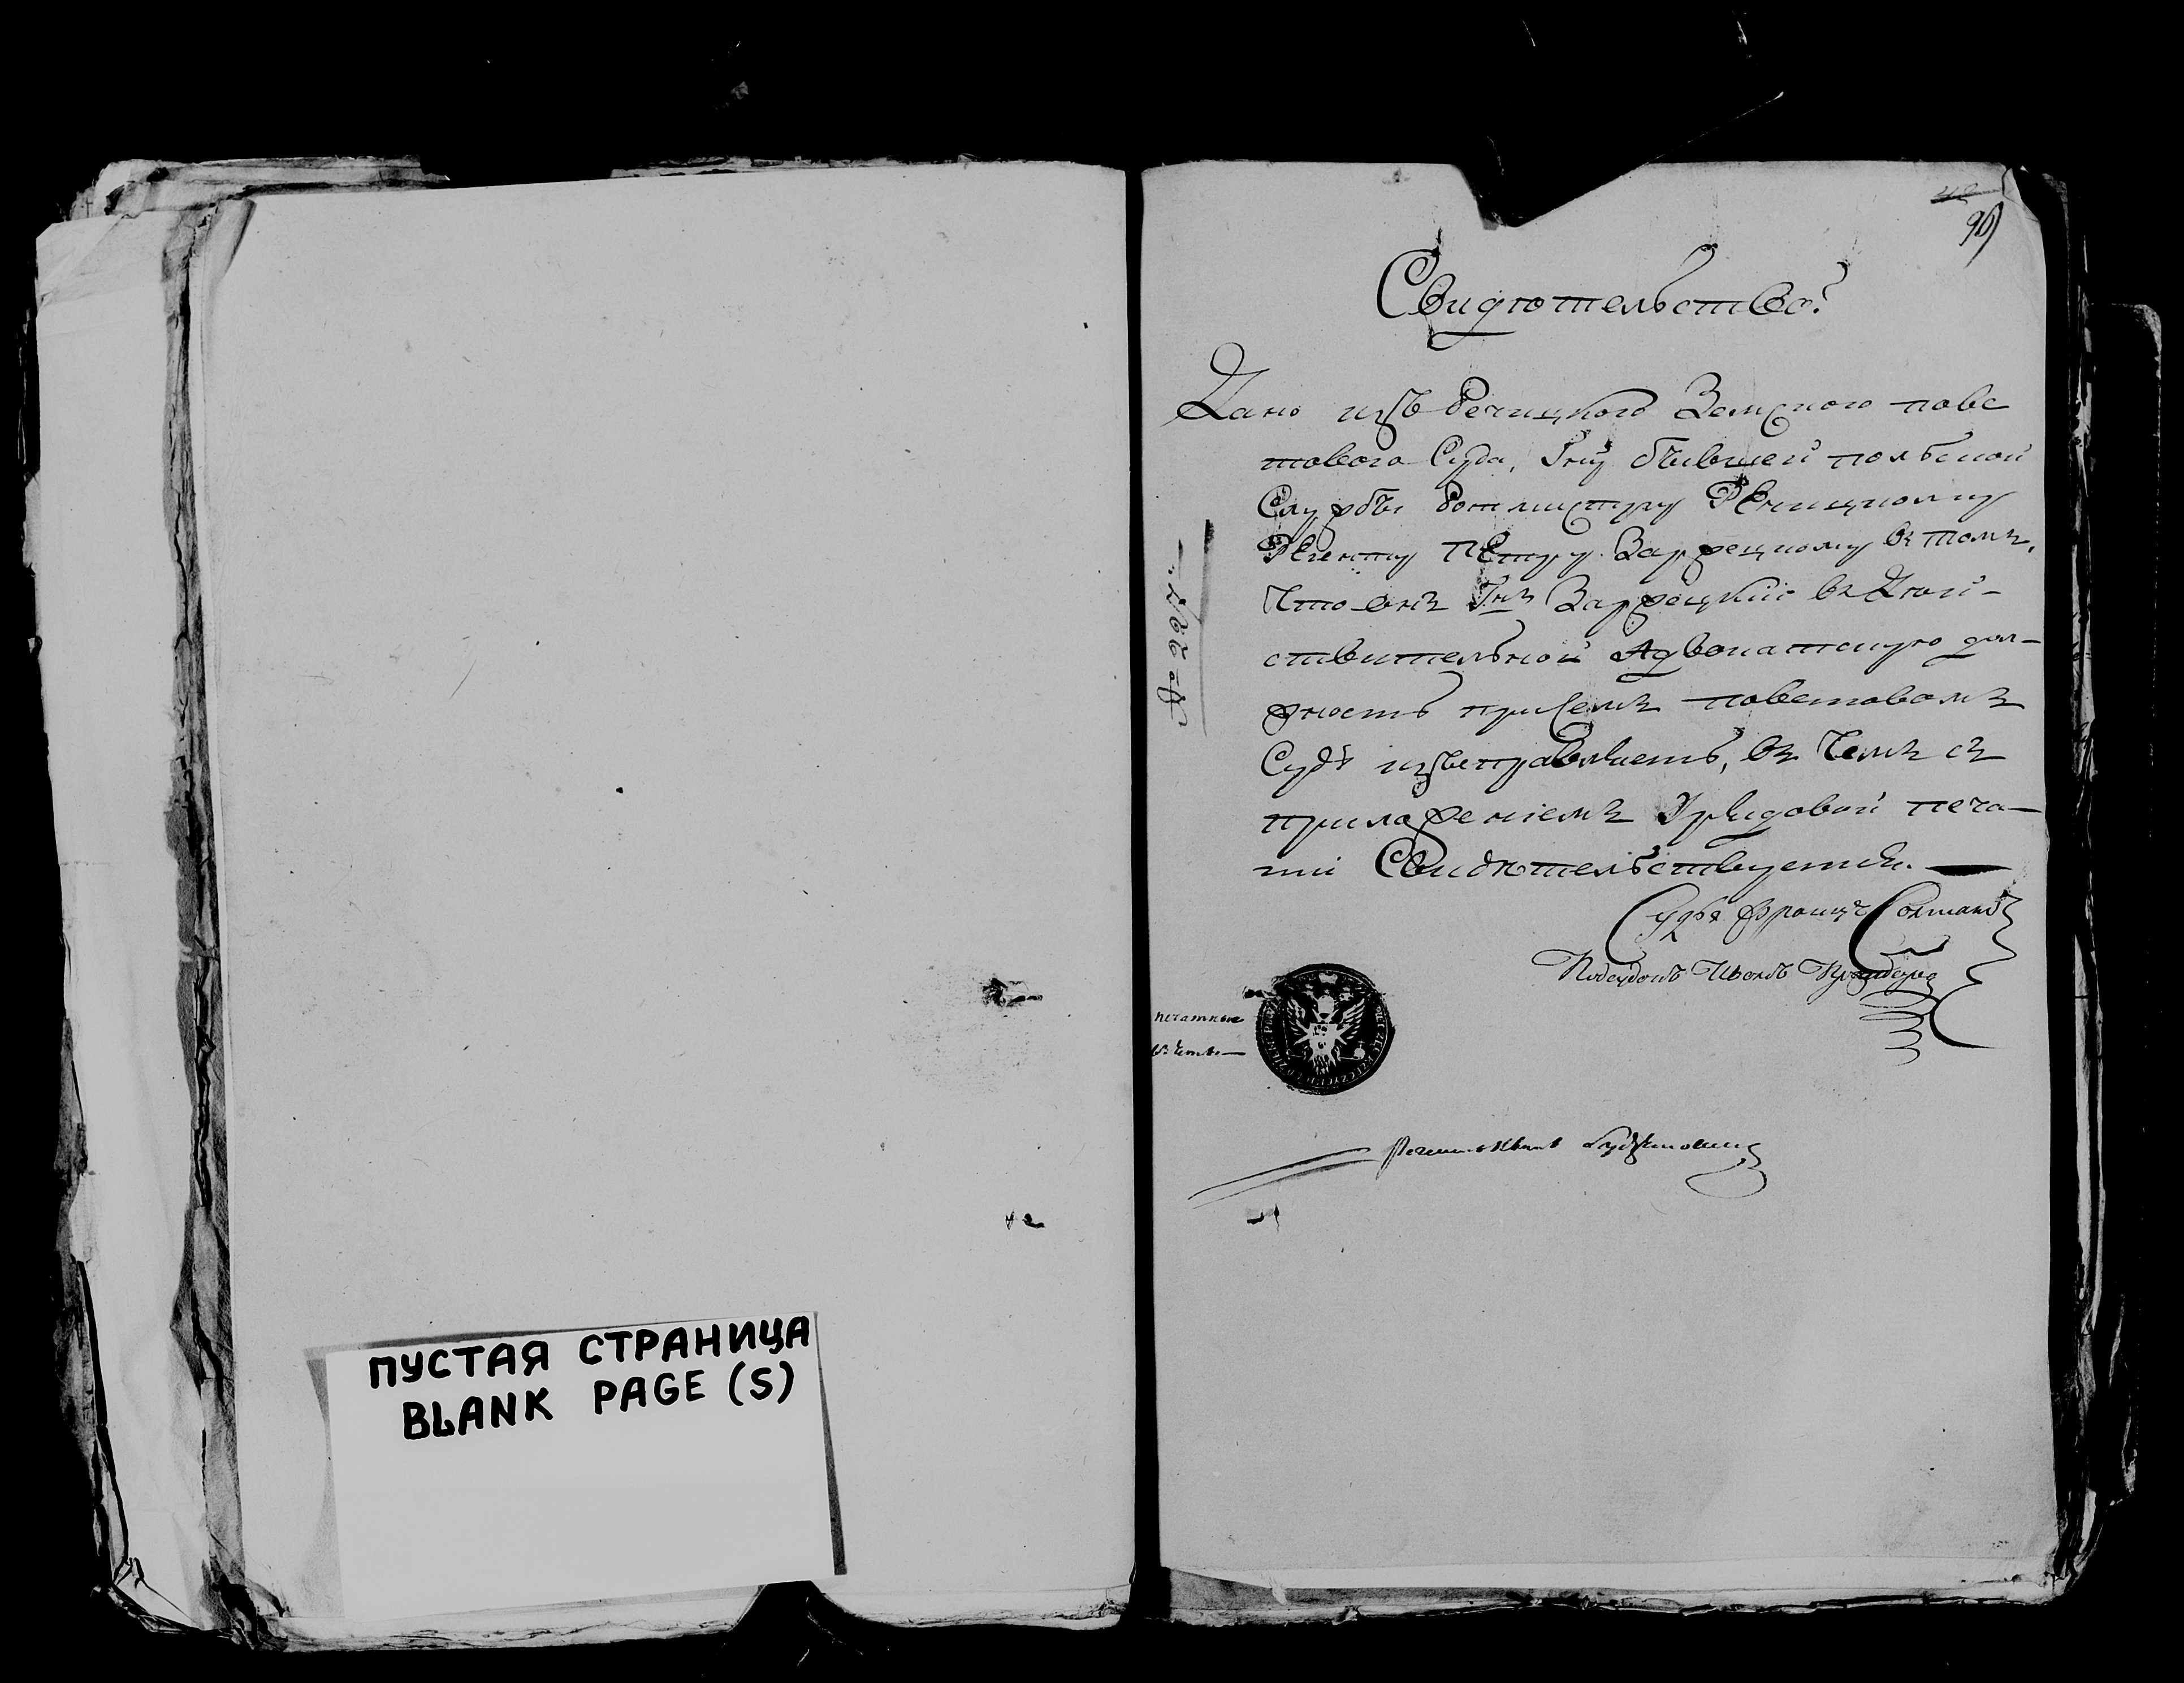 ПУСТАЯ СТРАНИЦА
BLANK PAGE (S)
Свидѣтельство.
Дано изъ Речицкого Земского пове
тового Суда, Гну бывшей польской
Службы Ротмистру Речицкому
Регенту Петру Заржецкому въ томъ,
Что онъ Гнъ Заржецкій въ Дѣй-
ствительной Адвокатскую дол-
жность присемъ поветовомъ
Судѣ изьправляетъ, въ Чемъ съ
приложеніемъ Урядовой печа-
ти Свидѣтельствуется. —
Судья Францъ Солтанъ
Подсудокъ Иванъ
печатные
Регентъ Иванъ